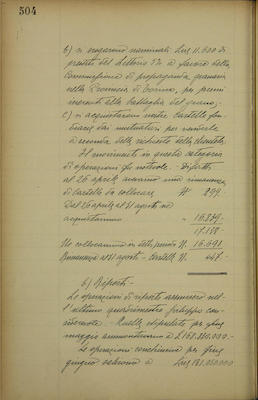 504
b) si erogarono nominali Lire 11.600 di
prestito del Littorio 5% a favore della
Commissione di propaganda granaria
nella Provincia di Torino, per premi
inerenti alla battaglia del grano;
c) si acquistarono nostre cartelle fon-
diarie dai mutuatari per
a seconda delle richieste della clientela.
Il movimento in questa categoria
di operazioni fu notevole. Difatti
al 26 aprile avevamo una rimanenza
di cartelle da collocare N. 299.
Dal 26 aprile al 31 agosto ne
acquistammo " 16.859.
17.158
Ne collocammo in detto periodo N. 16.691
Rimanenza al 31 agosto - Cartelle N. 467.
6) Riporti -
Le operazioni di riporto assunsero nel-
l'ultimo quadrimestre sviluppo con-
siderevole. Quelle stipulate per fine
maggio ammontarono a L. 168.810.000.-
Le operazioni conchiuse per fine
giugno salirono a Lire 181.050.000